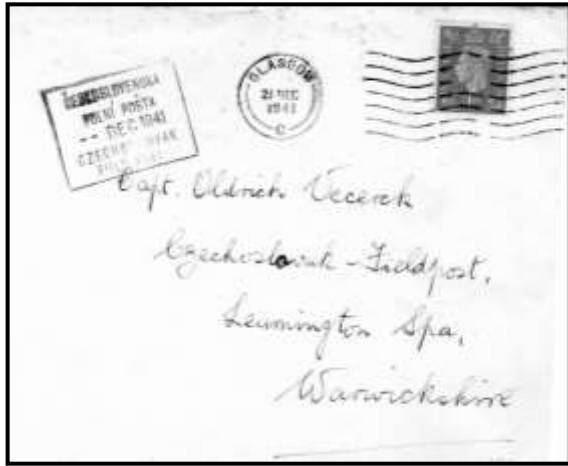 ČESKOSLOVENSKÁ
POLNÍ POSTA
-- DEC 1941
GLASGOW
21 DEC
1941
C
Capt. Oldrich Vecerek
Czechoslovak - Fieldpost,
Leamington Spa,
Warwickshire